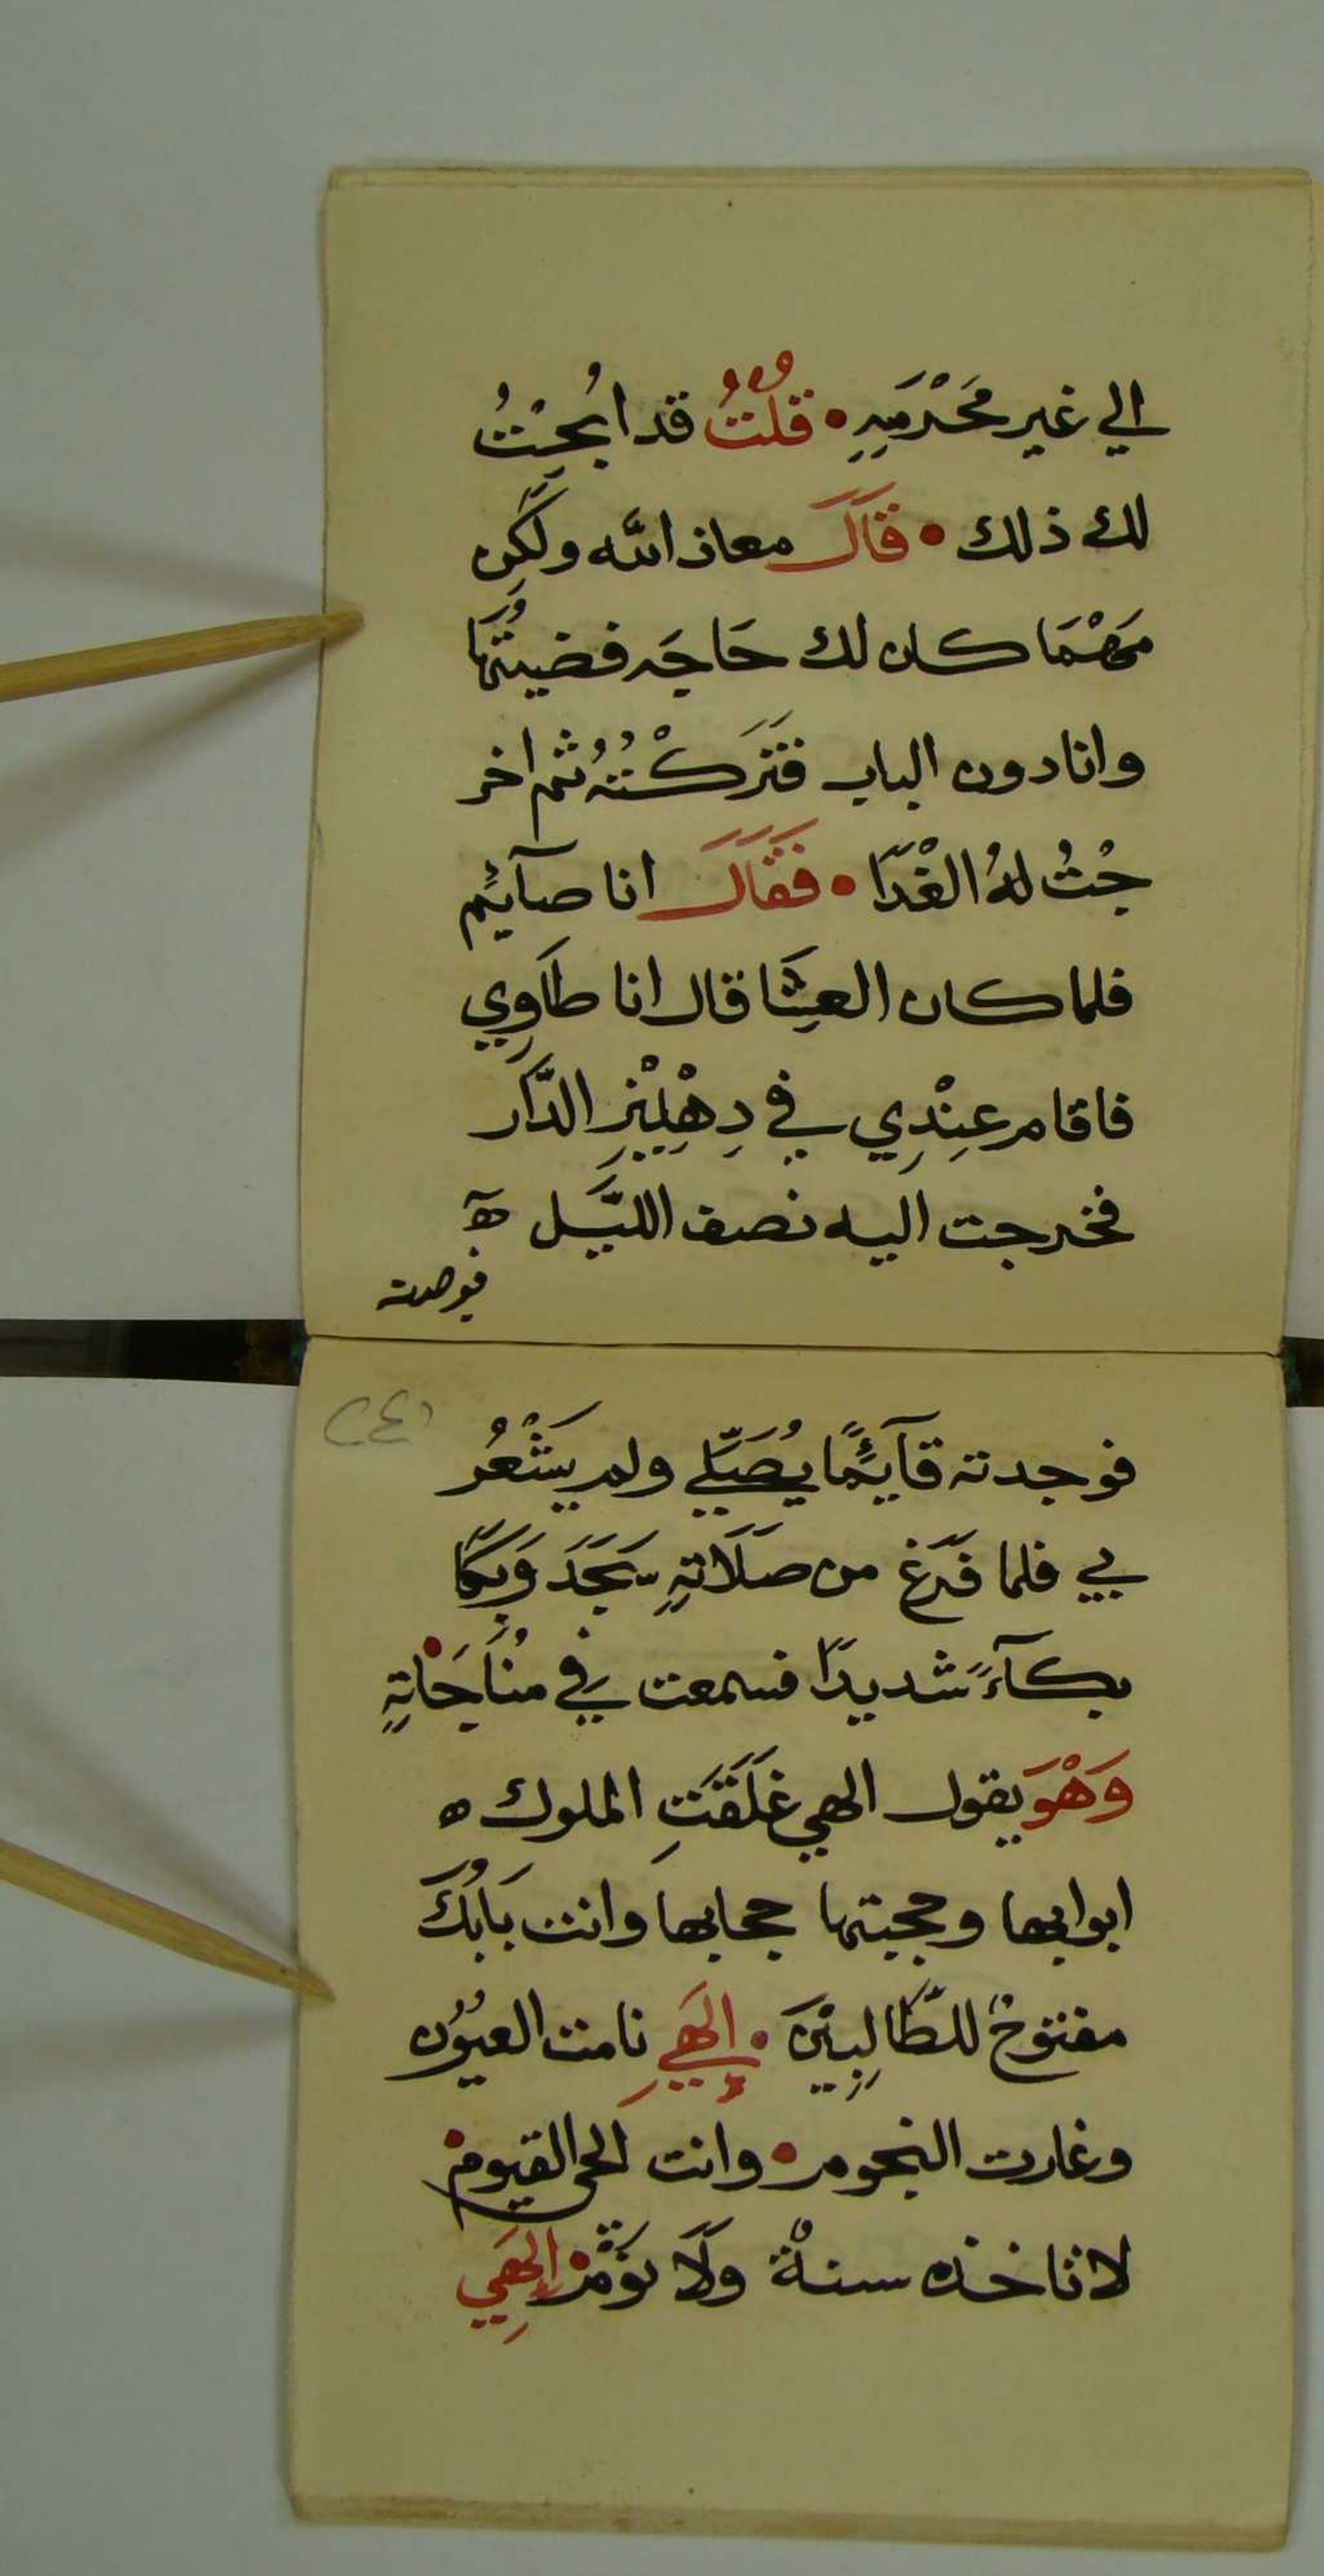 الي غير مَحْرَمِهِ • قُلْتُ قد ابُحْتُ
لك ذلك • قَالَ معاذ الله ولَكِن
مَهْمَا كان لك حَاجَه قضيتُهَا
وانا دون الباب فَتَرَكْتُهُ ثم اخر
جْتُ لهُ الغْدَا • فَقَالَ انا صآئِمٌ
فلما كان العِشَا قال انا طَاوِي
فاقام عِنْدِي في دِهْلِيْزِ الدَّار
فخرجت اليه نصف الليَّل ه
فوجدته
(٢٤)
فوجدته قآئِمًا يُصَلِّي ولم يَشْعُر
بي فلما فَرَغ من صلَاتِهِ سَجَدَ وَبَكَا
بكآءً شديدًا فسمعت في مُنَاجَاتِهِ
وَهْوَ يقول الهي غَلَقَتِ الملوك ه
ابوابها وحجبتها حجابها وانت بَابُكَ
مفتوحٌ للطَّالِبِيْنَ • إلَهِي نامت العيُوُن
وغارت النجوم • وانت الحي القيوم
لا تاخذه سنةٌ وَلَا نَوْمٌ إلَهِي